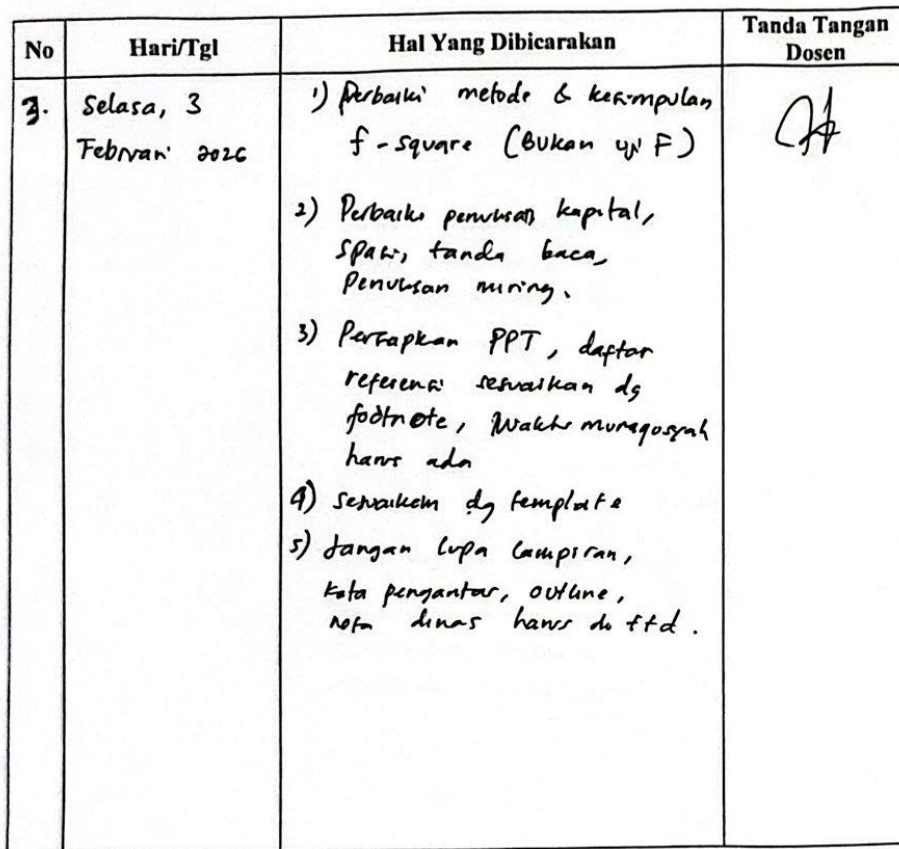 No Hari/Tgl Hal Yang Dibicarakan Tanda Tangan Dosen
3. Selasa, 3 Februari 2026
1) Perbaiki metode & kesimpulan
f-square (Bukan uji F)
2) Perbaiki penulisan kapital,
spasi, tanda baca,
Penulisan miring.
3) Persiapkan PPT, daftar
referensi sesuaikan dg
footnote, Waktu munaqosyah
harus ada
4) sesuaikan dg template
5) Jangan lupa lampiran,
kata pengantar, outline,
nota dinas harus di ttd.